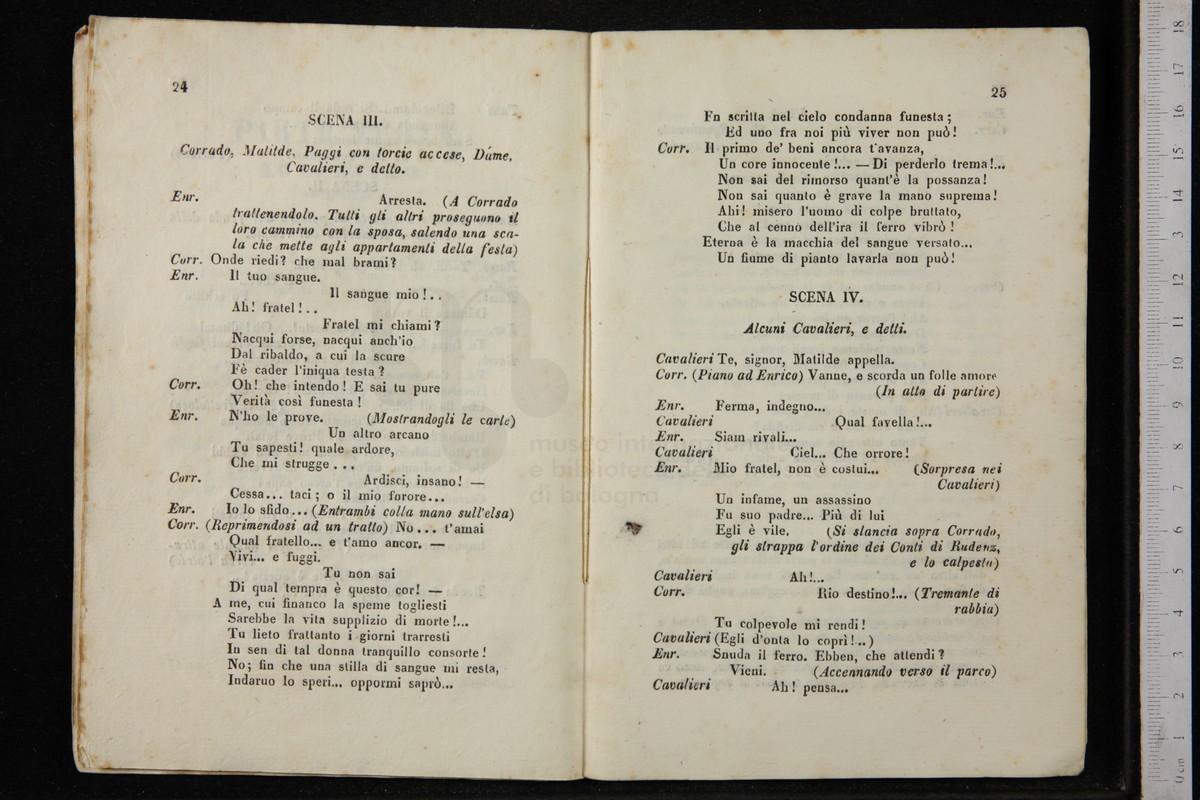 24
SCENA III.
Corrado, Matilde, Paggi con torcie accese, Dame,
Cavalieri, e detto.
Enr. Arresta. (A Corrado
trattenendolo. Tutti gli altri proseguono il
loro cammino con la sposa, salendo una sca-
la che mette agli appartamenti della festa)
Corr. Onde riedi? che mal brami?
Enr. Il tuo sangue.
Il sangue mio!..
Ah! fratel!..
Fratel mi chiami?
Nacqui forse, nacqui anch'io
Dal ribaldo, a cui la scure
Fè cader l'iniqua testa?
Corr. Oh! che intendo! E sai tu pure
Verità così funesta!
Enr. N'ho le prove. (Mostrandogli le carte)
Un altro arcano
Tu sapesti! quale ardore,
Che mi strugge...
Corr. Ardisci, insano! —
Cessa... taci; o il mio forore...
Enr. Io lo sfido... (Entrambi colla mano sull'elsa)
Corr. (Reprimendosi ad un tratto) No... t'amai
Qual fratello... e t'amo ancor. —
Vivi... e fuggi.
Tu non sai
Di qual tempra è questo cor! —
A me, cui financo la speme togliesti
Sarebbe la vita supplizio di morte!...
Tu lieto frattanto i giorni trarresti
In sen di tal donna tranquillo consorte!
No; fin che una stilla di sangue mi resta,
Indaruo lo speri... oppormi saprò...
25
Fn scritta nel cielo condanna funesta;
Ed uno fra noi più viver non può!
Corr. Il primo de' beni ancora t'avanza,
Un core innocente!... — Di perderlo trema!...
Non sai del rimorso quant'è la possanza!
Non sai quanto è grave la mano suprema!
Ahi! misero l'uomo di colpe bruttato,
Che al cenno dell'ira il ferro vibrò!
Eterna è la macchia del sangue versato...
Un fiume di pianto lavarla non può!
SCENA IV.
Alcuni Cavalieri, e detti.
Cavalieri Te, signor, Matilde appella.
Corr. (Piano ad Enrico) Vanne, e scorda un folle amore
(In atto di partire)
Enr. Ferma, indegno...
Cavalieri Qual favella!...
Enr. Siam rivali...
Cavalieri Ciel... Che orrore!
Enr. Mio fratel, non è costui... (Sorpresa nei
Cavalieri)
Un infame, un assassino
Fu suo padre... Più di lui
Egli è vile. (Si slancia sopra Corrado,
gli strappa l'ordine dei Conti di Rudenz,
e lo calpesta)
Cavalieri Ah!...
Corr. Rio destino!... (Tremante di
rabbia)
Tu colpevole mi rendi!
Cavalieri (Egli d'onta lo coprì!..)
Enr. Snuda il ferro. Ebben, che attendi?
Vieni. (Accennando verso il parco)
Cavalieri Ah! pensa...
museo internazionale
e biblioteca della
di bologna
0 cm 1 2 3 4 5 6 7 8 9 10 11 12 13 14 15 16 17 18